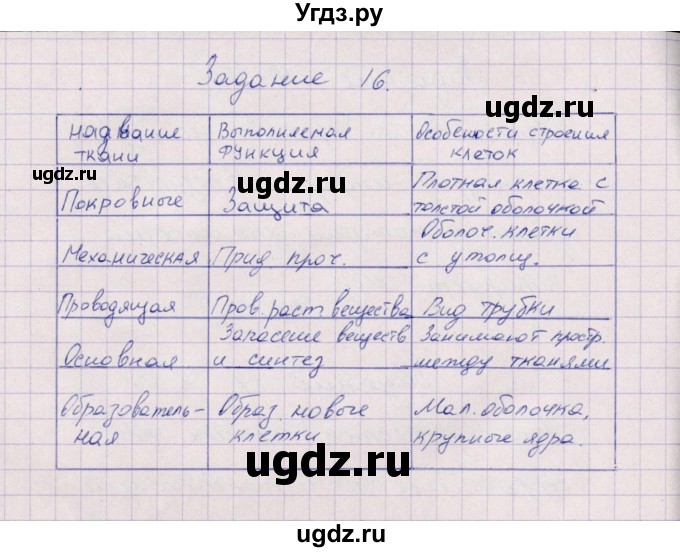 Угдз.ру
Задание 16.
название ткани | Выполняемая функция | Особенности строения клеток
Покровные | Защита | Плотная клетка с толстой оболочкой
Механическая | Прид. проч. | Оболоч. клетки с утолщ.
Проводящая | Пров. раст вещества | Вид трубки
Основная | Запасение веществ и синтез | Занимают простр. между тканями
Образователь-ная | Образ. новые клетки | Мал. оболочка, крупные ядра.
ugdz.ru
ugdz.ru
ugdz.ru
ugdz.ru
ugdz.ru
ugdz.ru
ugdz.ru
ugdz.ru
ugdz.ru